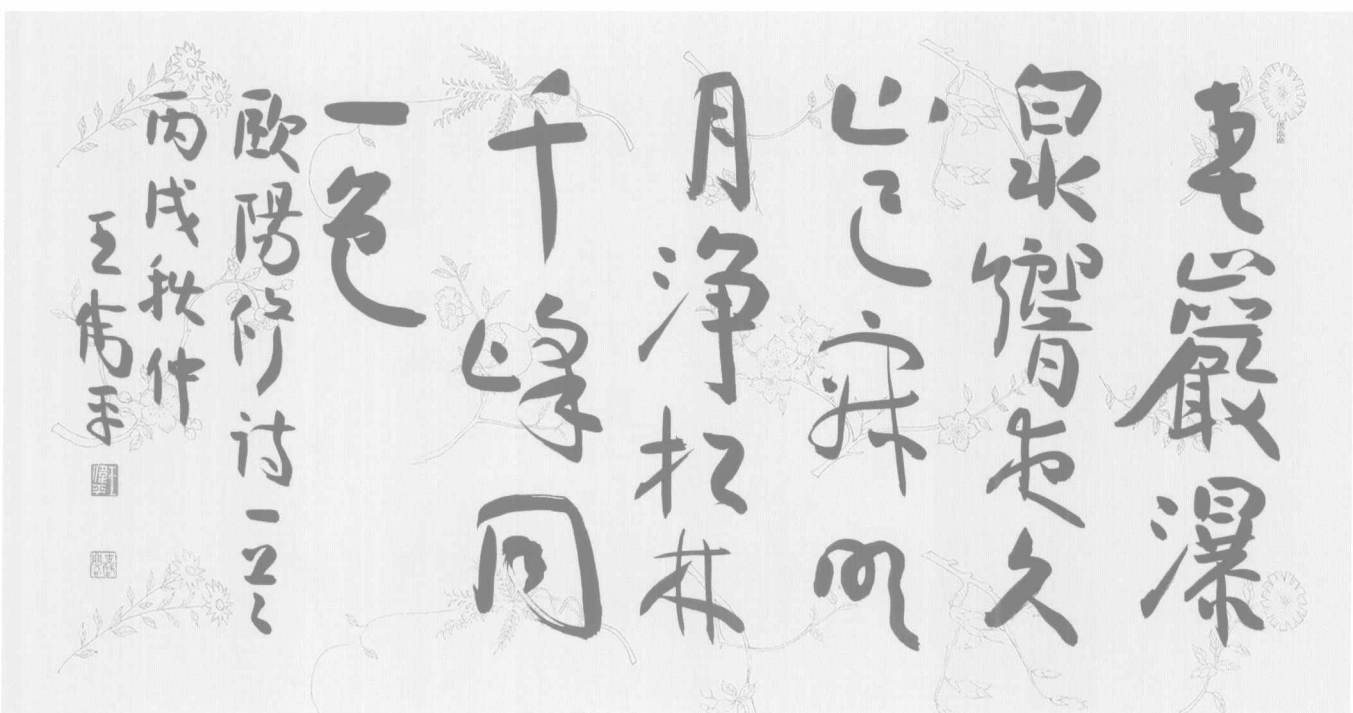 春巖瀑
泉響夜久
山已寂明
月净松林
千峰同
一色
歐陽修诗一首
丙戌秋仲
王偉平